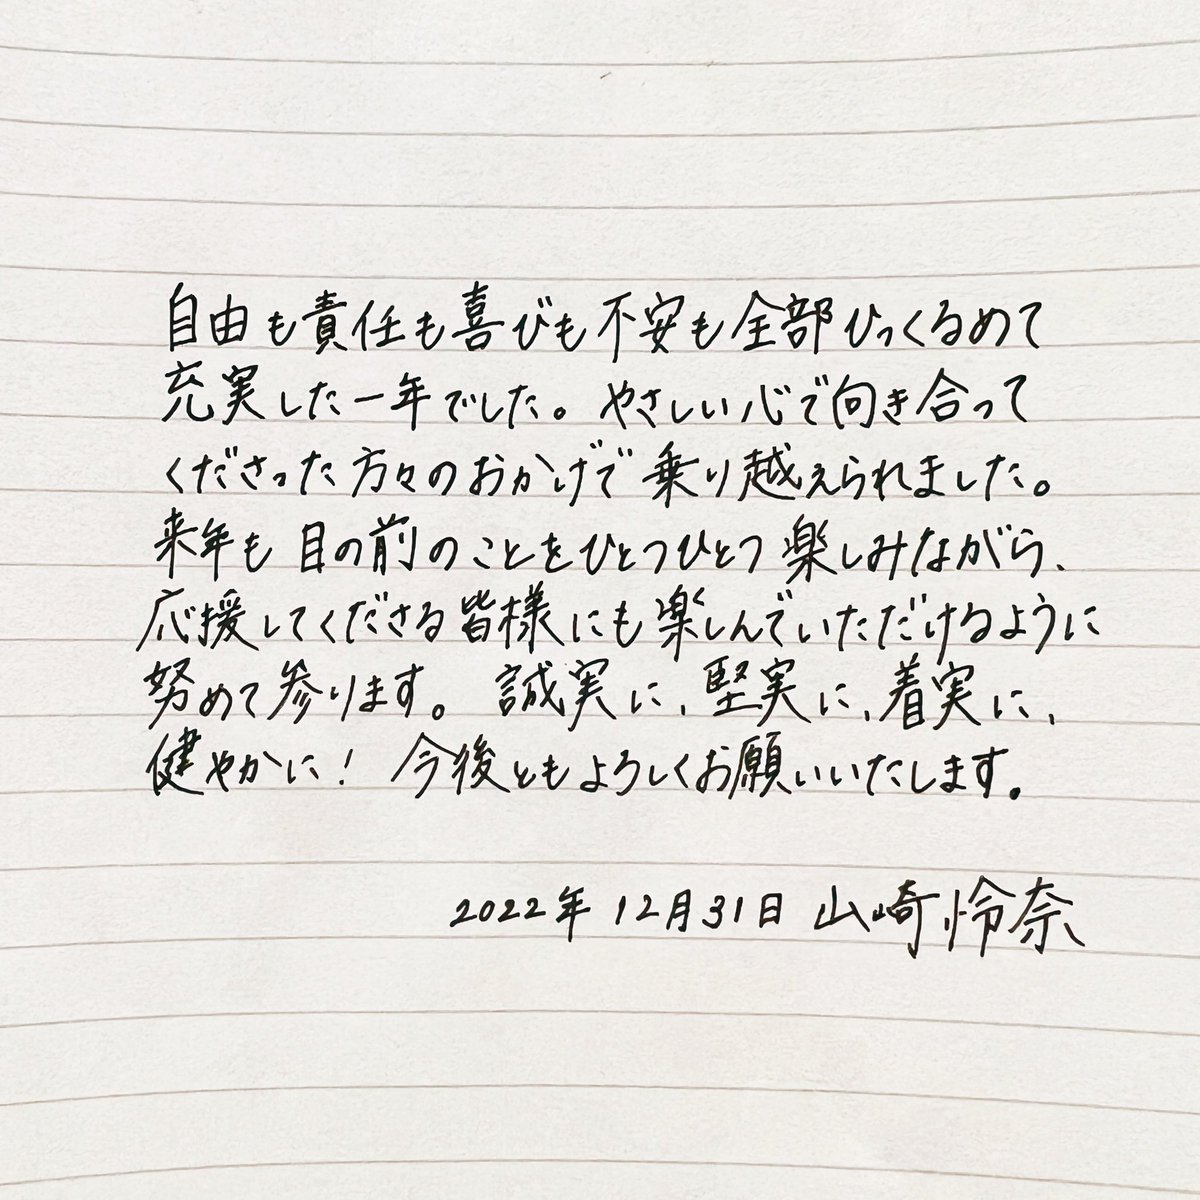 自由も責任も喜びも不安も全部ひっくるめて
充実した一年でした。やさしい心で向き合って
くださった方々のおかげで乗り越えられました。
来年も目の前のことをひとつひとつ楽しみながら、
応援してくださる皆様にも楽しんでいただけるように
努めて参ります。誠実に、堅実に、着実に、
健やかに！今後ともよろしくお願いいたします。
2022年12月31日 山崎怜奈